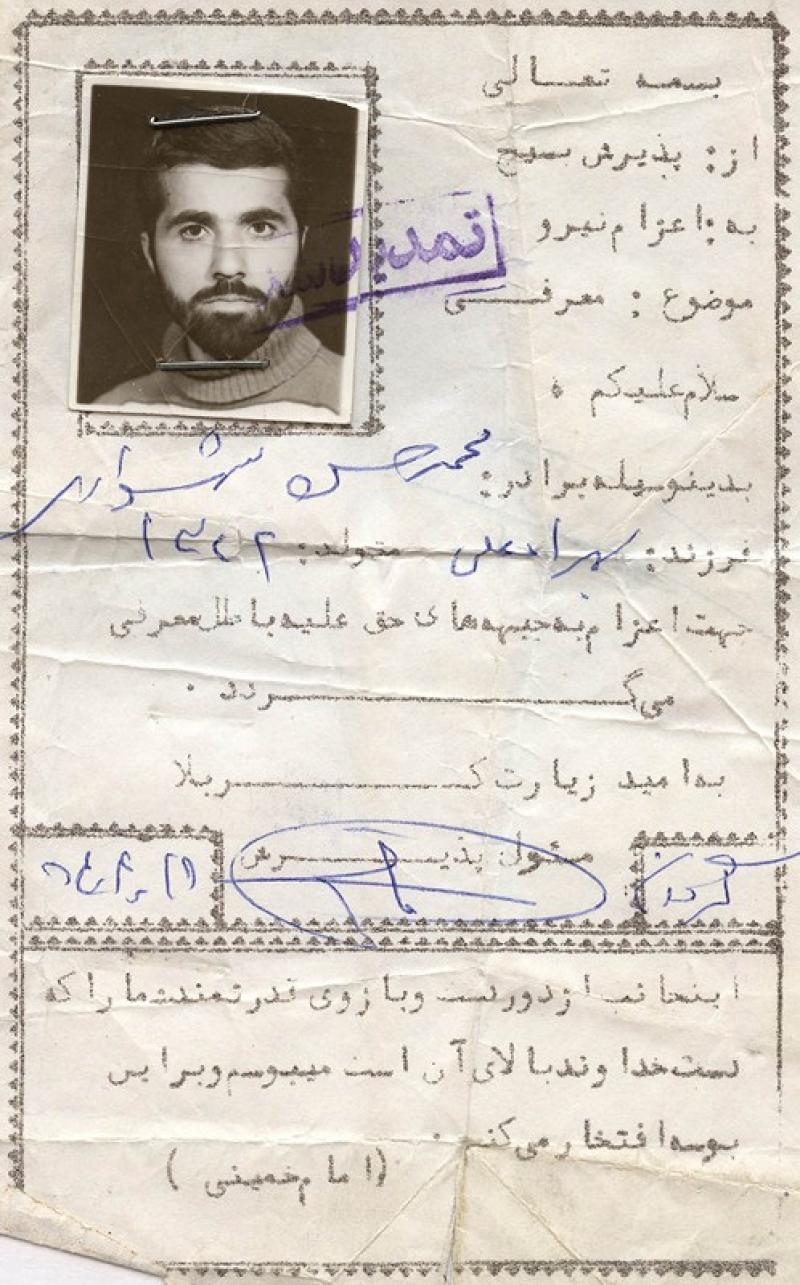 بسمه تعالی
از: پذیرش بسیج
به: اعزام نیرو
تمدید شد
موضوع: معرفی
سلام علیکم
بدینوسیله برادر: محمدحسن شهسواری
فرزند: متولد: ۱۳۴۲
جهت اعزام به جبهه‌های حق علیه باطل معرفی
می‌گردد.
به امید زیارت کربلا
مسئول پذیرش
اینجانب از دور دست و بازوی قدرتمند شما را که
دست خداوند بالای آن است میبوسم و بر این
بوسه افتخار می‌کنم.
(امام خمینی)